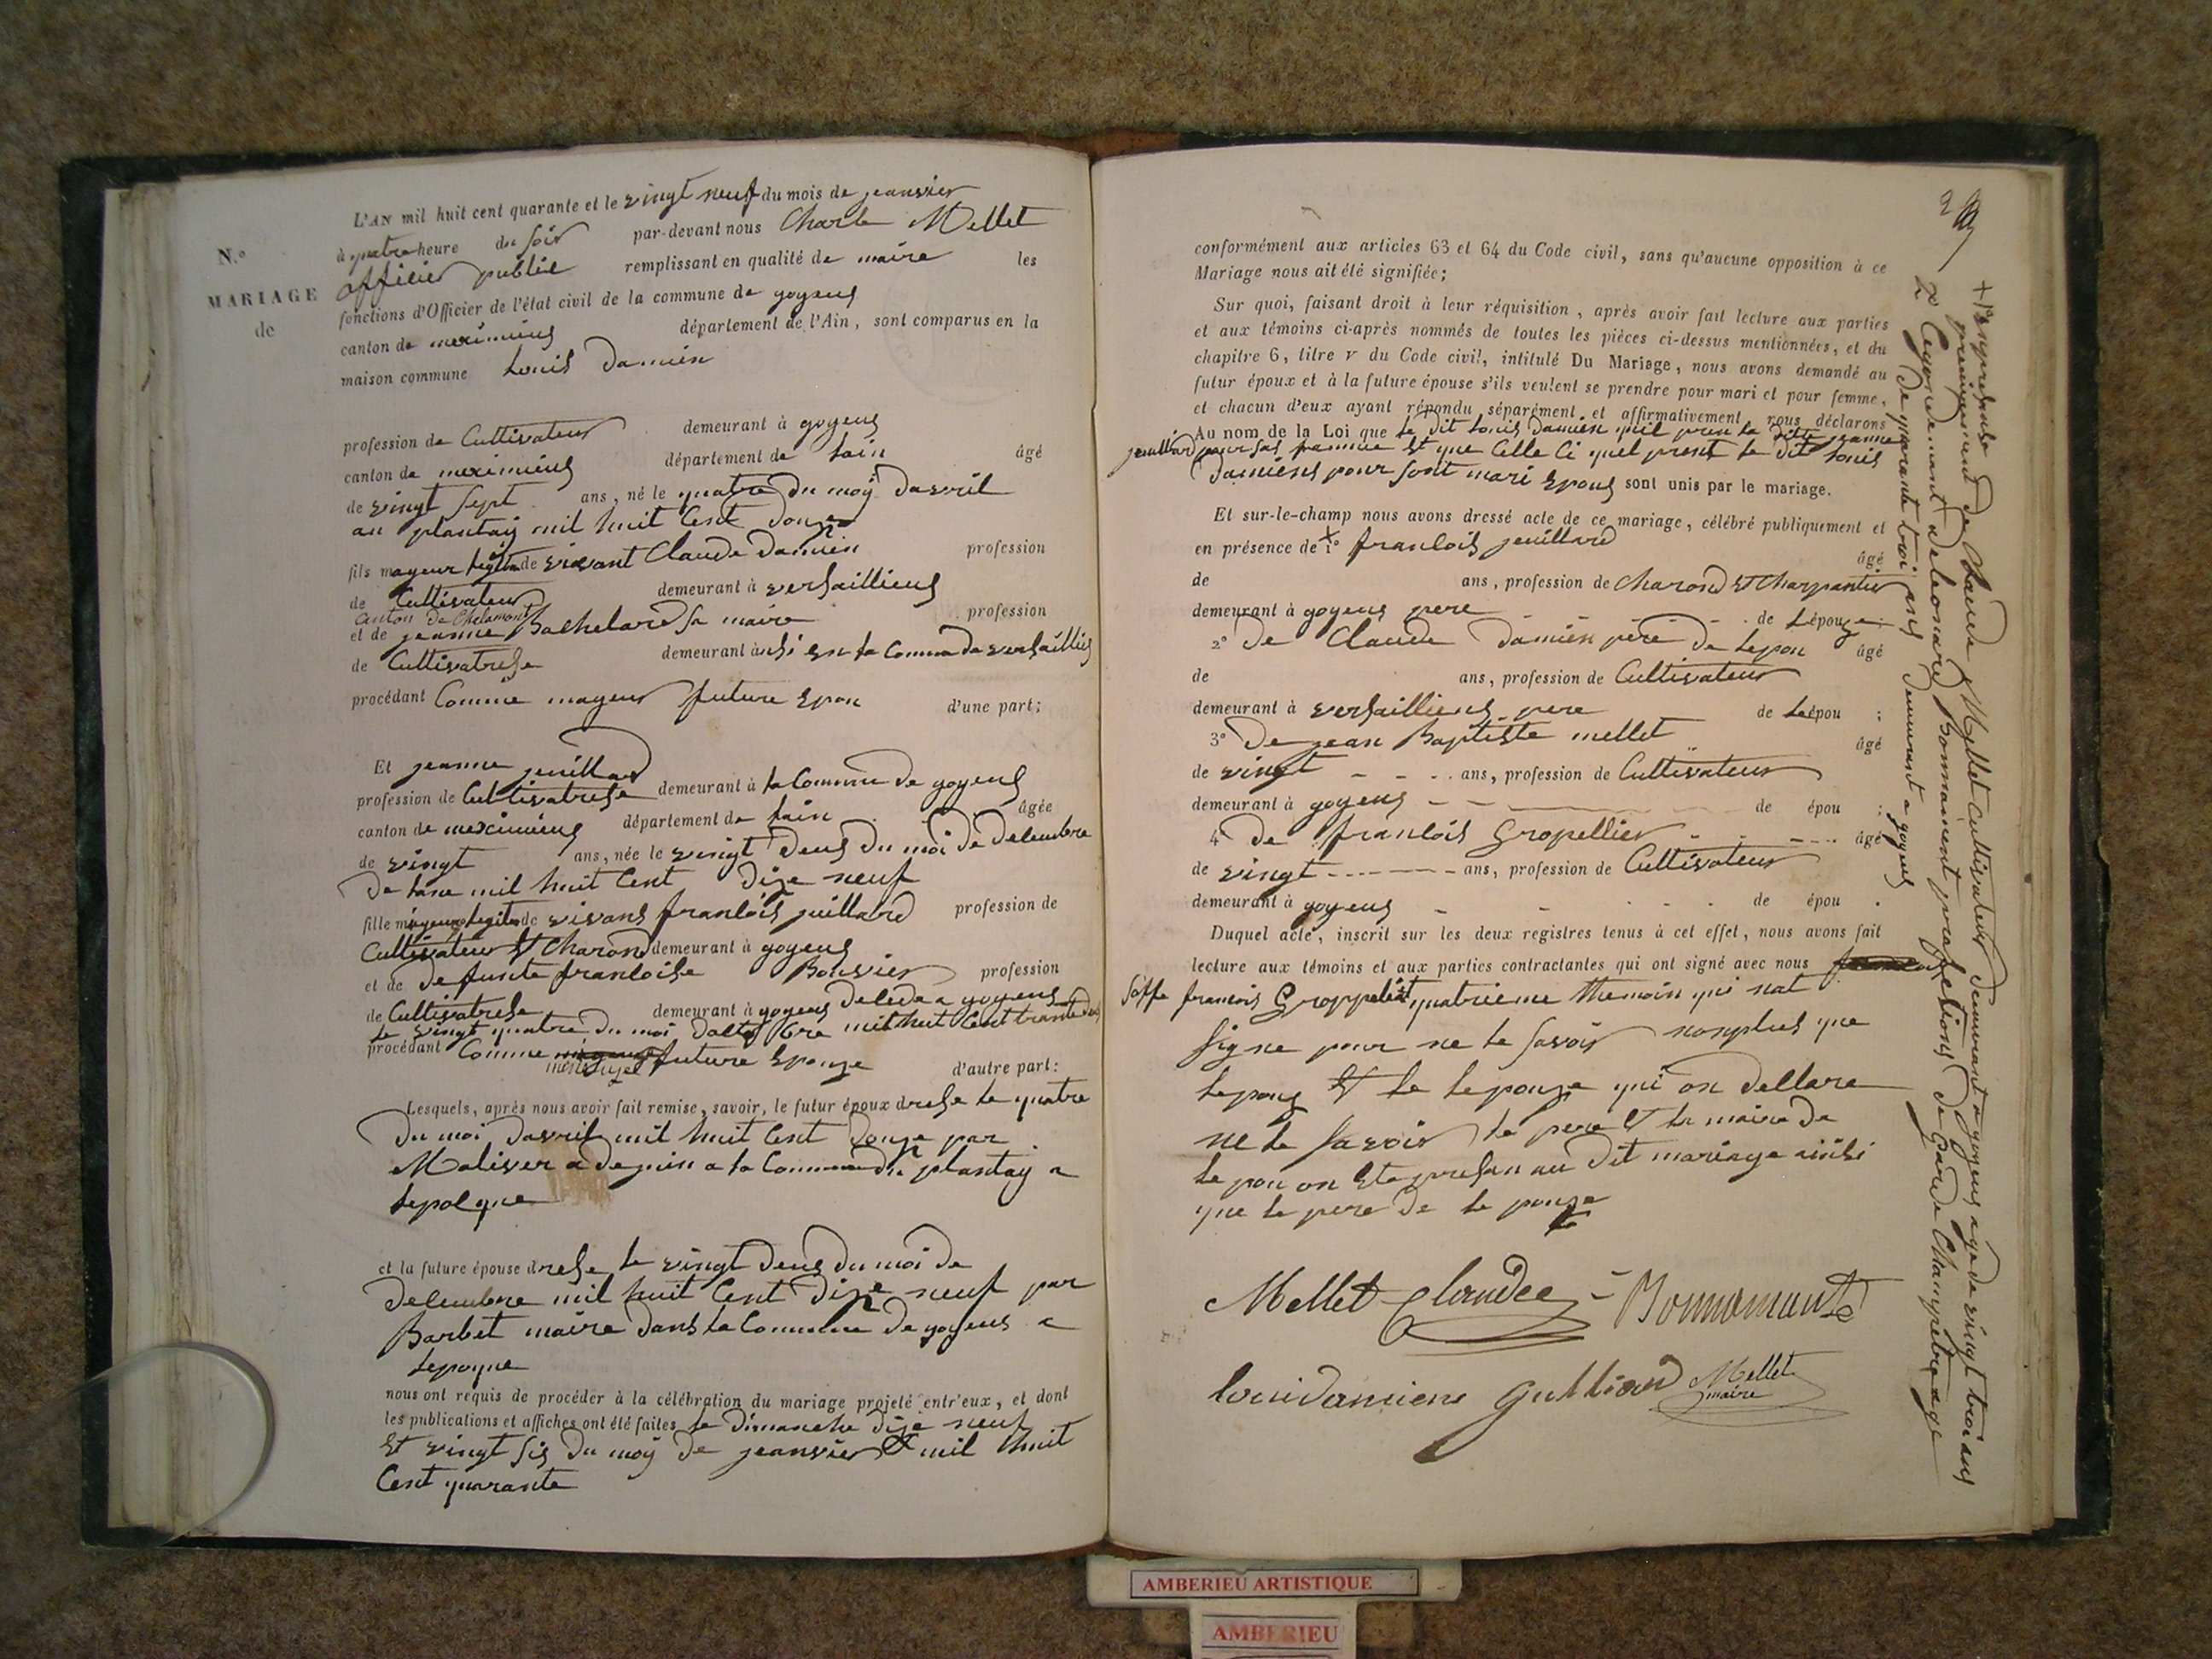 N.°
MARIAGE
de
L'AN mil huit cent quarante et le vingt neuf du mois de jeanvier
à quatre heure du soir par-devant nous Charle Mellet
offisier publie remplissant en qualité de maire les
fonctions d'Officier de l'état civil de la commune de joyeus
canton de meximieus département de l'Ain, sont comparus en la
maison commune Louis Damien
profession de Cultivateur demeurant à joyeus
canton de meximieus département de lain âgé
de vingt sept ans, né le quatre du moy davril
au plantay mil huit Cent Douze
fils mayeur legitim de vivant Claude Damien profession
de Cultivateur demeurant à versaillieus
Canton de Chalamont
et de jeanne Bachelard sa maire profession
de Cultivatrise demeurant àusi en la Commu de versaillieus
procédant Comme mayeur future Epou d'une part;
Et jeanne jeuillard
profession de Cultivatrise demeurant à la Commune de joyeus
canton de meximieus département de lain âgée
de vingt ans, née le vingt Deus du moi de decembre
de lane mil huit Cent dize neuf
fille mayeure legitim de vivans francois juillard profession de
Cultivateur Et Charond demeurant à joyeus
et de defunte francoise Bouvier profession
de Cultivatrise demeurant à joyeus desede a joyeus
le vingt quatre du moi doctobre mil huit Cent trante deus
procédant Comme future Epouze d'autre part:
Lesquels, après nous avoir fait remise, savoir, le futur époux drese le quatre
du moi davril mil huit Cent Douze par
Moliver adejoin a la Commune du plantay a
lepolque
et la future épouse drese le vingt deus du moi de
decembre mil huit Cent Dize neuf par
Barbet maire dans la Commune de joyeus a
lepoque
nous ont requis de procéder à la célébration du mariage projeté entr'eux, et dont
les publications et affiches ont été faites le dimanche dize neuf
Et vingt sis du moy de jeanvier mil huit
Cent quarante
conformément aux articles 63 et 64 du Code civil, sans qu'aucune opposition à ce
Mariage nous ait été signifiée;
Sur quoi, faisant droit à leur réquisition, après avoir fait lecture aux parties
et aux témoins ci-après nommés de toutes les pièces ci-dessus mentionnées, et du
chapitre 6, titre v du Code civil, intitulé Du Mariage, nous avons demandé au
futur époux et à la future épouse s'ils veulent se prendre pour mari et pour femme,
et chacun d'eux ayant répondu séparément et affirmativement, nous déclarons
Au nom de la Loi que le dit Louis Damien quil pren la ditte jeanne
jeuillard pour sas famme Et que Celle Ci quel prent le dit Louis
Damiens pour sont mari Epous sont unis par le mariage.
Et sur-le-champ nous avons dressé acte de ce mariage, célébré publiquement et
en présence de + 1° francois jeuillard âgé
de ans, profession de Charond Et Charpantier
demeurant à joyeus pere de Lépouze
2° de Claude Damien père de lepou âgé
de ans, profession de Cultivateur
demeurant à versaillieus pere de Leépou ;
3° de jean Baptiste mellet âgé
de vingt ans, profession de Cultivateur
demeurant à joyeus de épou ;
4° de francois Gropellier âgé
de vingt ans, profession de Cultivateur
demeurant à joyeus de épou .
Duquel acte, inscrit sur les deux registres tenus à cet effet, nous avons fait
lecture aux témoins et aux parties contractantes qui ont signé avec nous
francois quatrieme themoin qui nat
signe pour ne le savoir nonplus que
lepous Et le lepouze qui on dellare
ne le savoir le pere Et la maire de
le pou on Ete presan au dit mariage ainsi
que le pere de le pouze
Mellet Claudee Bonnamant
louidamiens Guillard Mellet
maire
+ 1° Enpresense de Claude Mellet Cultivateur demeurant a joyeus age de vingt trois ans
premierement
2° Segondemant de leonard Bonnamant profestions de Garde Champetre age
de quarante trois ans demeurant a joyeus
AMBERIEU ARTISTIQUE
AMBERIEU